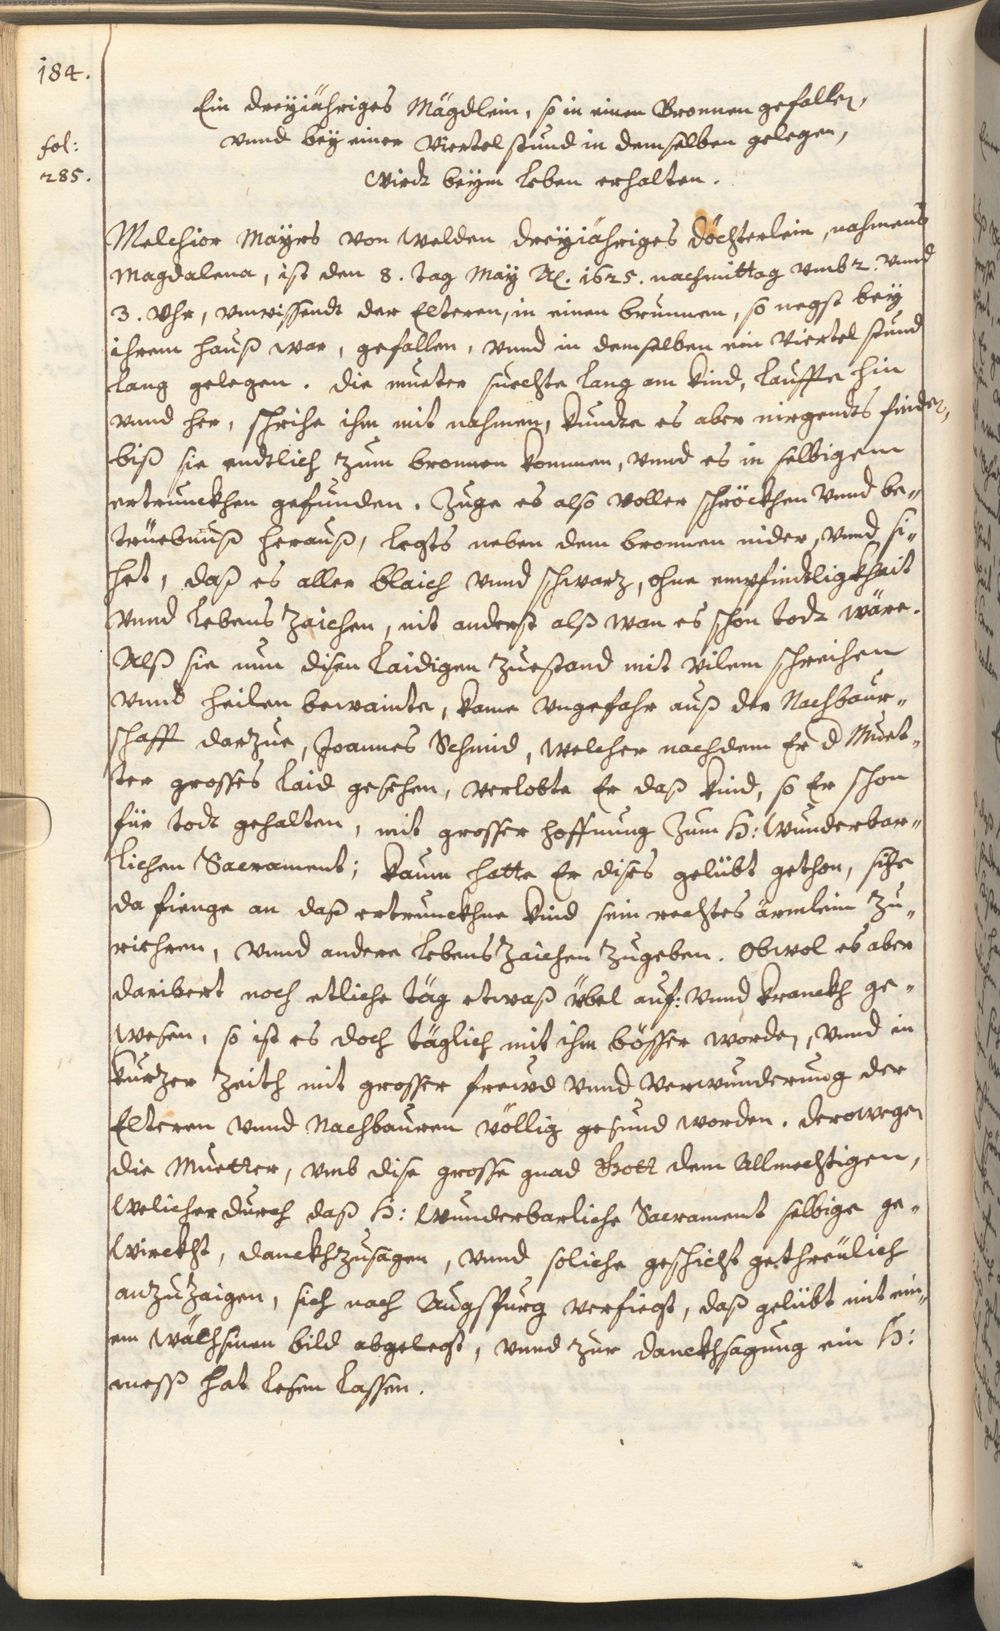 184.
Ein dreyjähriges Mägdlein, so in einen Bronnen gefallen,
vnnd bey einer Viertel stund in demselben gelegen,
Wirdt beym leben erhalten.
fol:
285.
Melchior Mayrs von Welden dreyjähriges döchterlein, nahmens
Magdalena, ist den 8. tag May Aō. 1625. nachmittag vmb 2. vnnd
3. Vhr, vnwissendt der Elteren, in einen brunnen, so negst bey
ihrem hauß war, gefallen, vnnd in demselben ein Viertel stund
lang gelegen. Die mueter suechte lang am kind, lauffte hin
vnnd her, schrihe ihm mit nahmen, kundte es aber nirgendts finden,
biß sie endtlich zum bronnen kommen, vnnd es in selbigem
ertrunckhen gefunden. Zuge es also voller schröckhen vnnd be-
trüebnuß herauß, legts neben dem bronnen nider, vnnd si-
het, daß es aller blaich vnnd schwarz, ohne empfindtligkheit
vnnd lebens zaichen, nit anderst alß wan es schon todt wäre.
Alß sie nun disen laidigen zuestand mit vilem schreihen
vnnd heilen bewainte, kame vngefahr auß der Nachbaur-
schafft darzue, Joannes Schmid, welcher nachdem Er d Muet-
ter grosses laid gesehen, verlobte Er daß kind, so Er schon
für todt gehalten, mit grosser hoffnung zum H: Wunderbar-
lichen Sacrament; kaum hatte Er dises gelübt gethon, sihe
da fienge an daß ertrunckhne kind sein rechtes ärmlein zu-
riehren, vnnd andere lebens zaichen zugeben. Obwol es aber
daribert noch etliche täg etwaß übel auf: vnnd kranckh ge-
wesen, so ist es doch täglich mit ihm bösser worden, vnnd in
kurtzer zeith mit grosser frewd vnnd verwunderung der
Elteren vnnd Nachbauren völlig gesund worden. Derowegen
die Muetter, vmb dise grosse gnad Gott dem Allmechtigen,
Welicher durch daß H: Wunderbarliche Sacrament selbige ge-
wirckht, danckhzusagen, vnnd soliche geschicht gethreülich
anzuzaigen, sich nach Augspurg verfiegt, daß gelübt mit ein-
em wächsinen bild abgelegt, vnnd zur danckhsagung ein H:
mess hat lesen lassen.